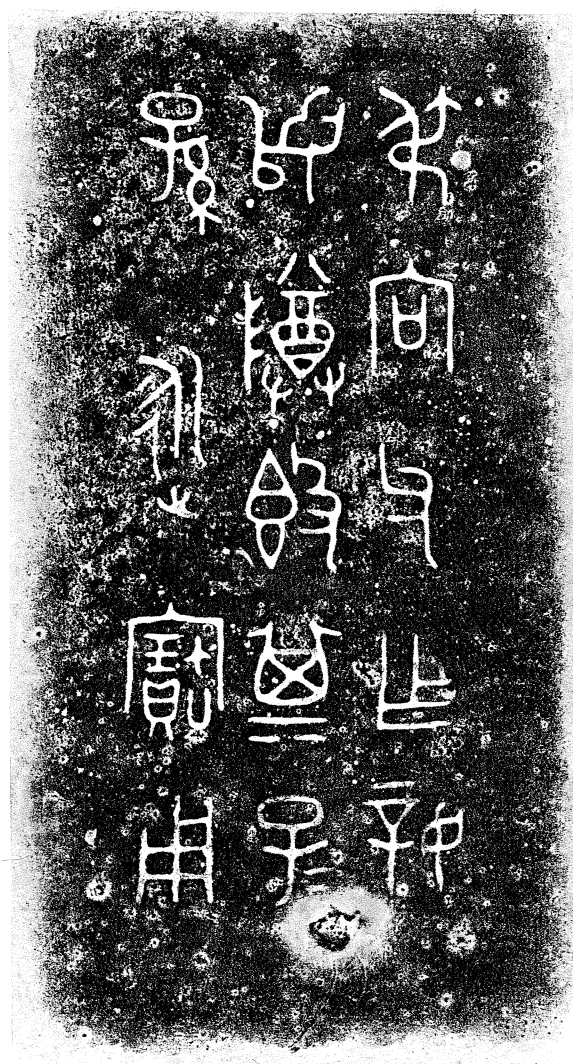 叔向父乍婞
姒尊簋其子
孫永寶用